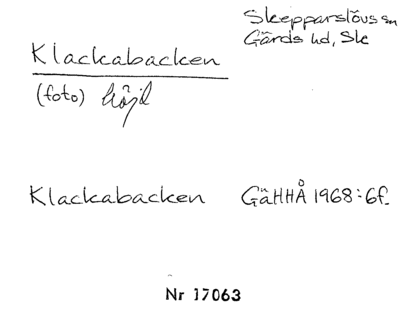 Skepparslövs sn
Gärds hd, Sk
Klackabacken
(foto) höjd
Klackabacken GäHHÅ 1968:6f.
Nr 17063